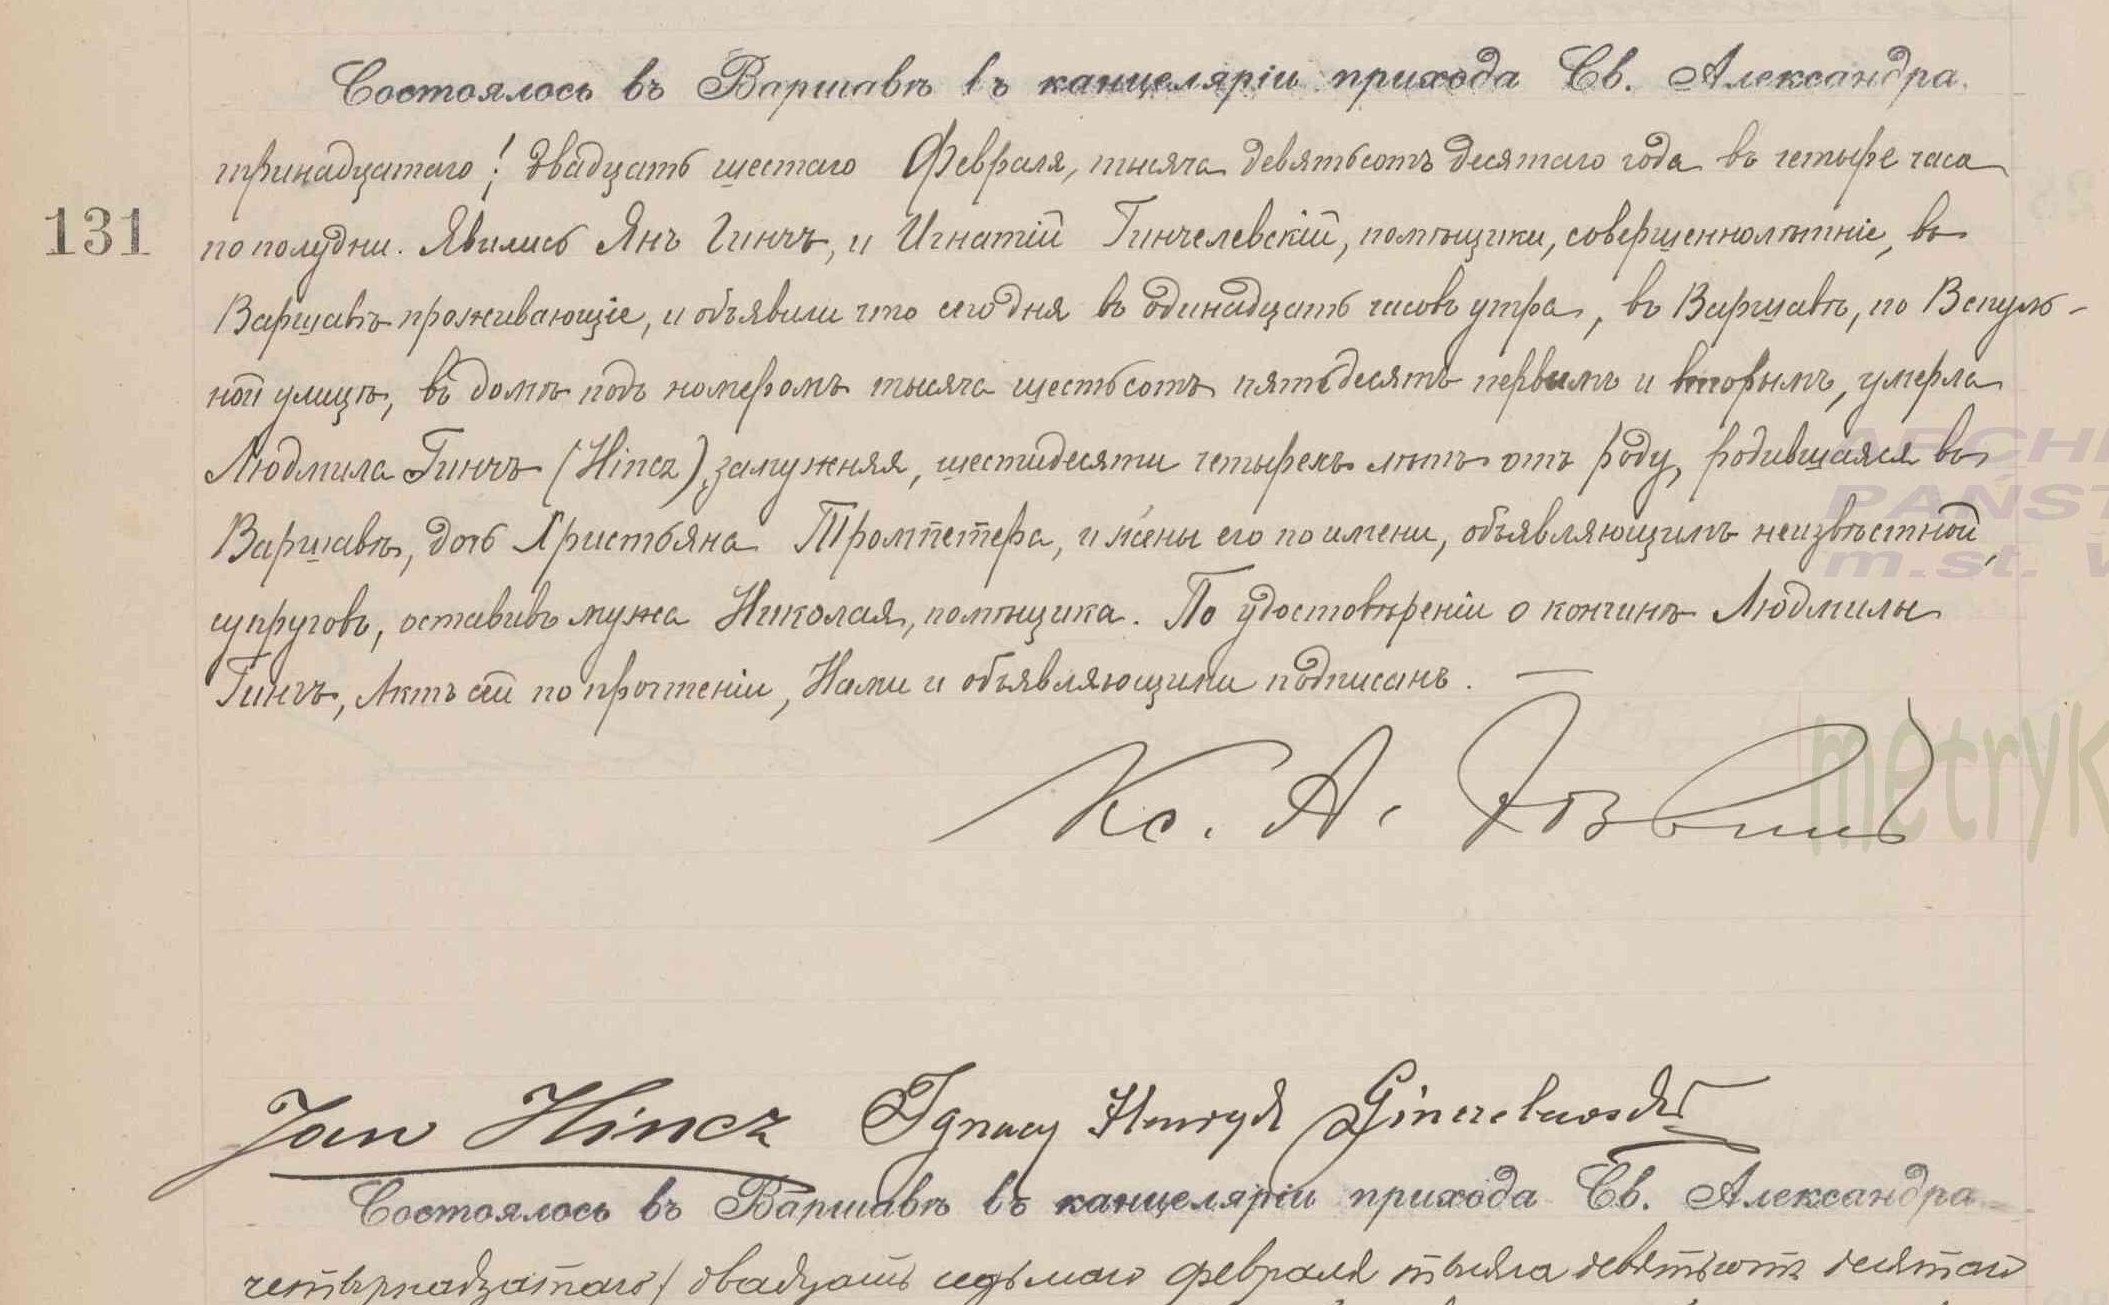 Состоялось въ Варшавѣ въ канцеляріи прихода Св. Александра.
тринадцатаго / двадцать шестаго Февраля, тысяча девятьсотъ десятаго года въ четыре часа
131
пополудни. Явились Янъ Гинчъ, и Игнатій Гинчелевскій, помѣщики, совершеннолѣтніе, въ
Варшавѣ проживающіе, и объявили что сегодня въ одинадцать часовъ утра, въ Варшавѣ, по Вспуль-
ной улицѣ, въ домѣ подъ номеромъ тысяча шестьсотъ пятьдесятъ первымъ и вторымъ, умерла
Людмила Гинчъ (Hincz), замужняя, шестидесяти четырехъ лѣтъ отъ роду, родившаяся въ
Варшавѣ, дочь Христьяна Тромпетера, и жены его по имени, объявляющимъ неизвѣстной,
супруговъ, оставивъ мужа Николая, помѣщика. По удостовѣреніи о кончинѣ Людмилы
Гинчъ, Актъ сей по прочтеніи, Нами и объявляющими подписанъ. —
Кс. А.
Jan Hincz Ignacy Henryk Ginczelewski
Состоялось въ Варшавѣ въ канцеляріи прихода Св. Александра
четырнадцатаго / двадцать седьмаго февраля тысяча девятьсотъ десятаго
ARCHI
PAŃST
m.st. W
metryk